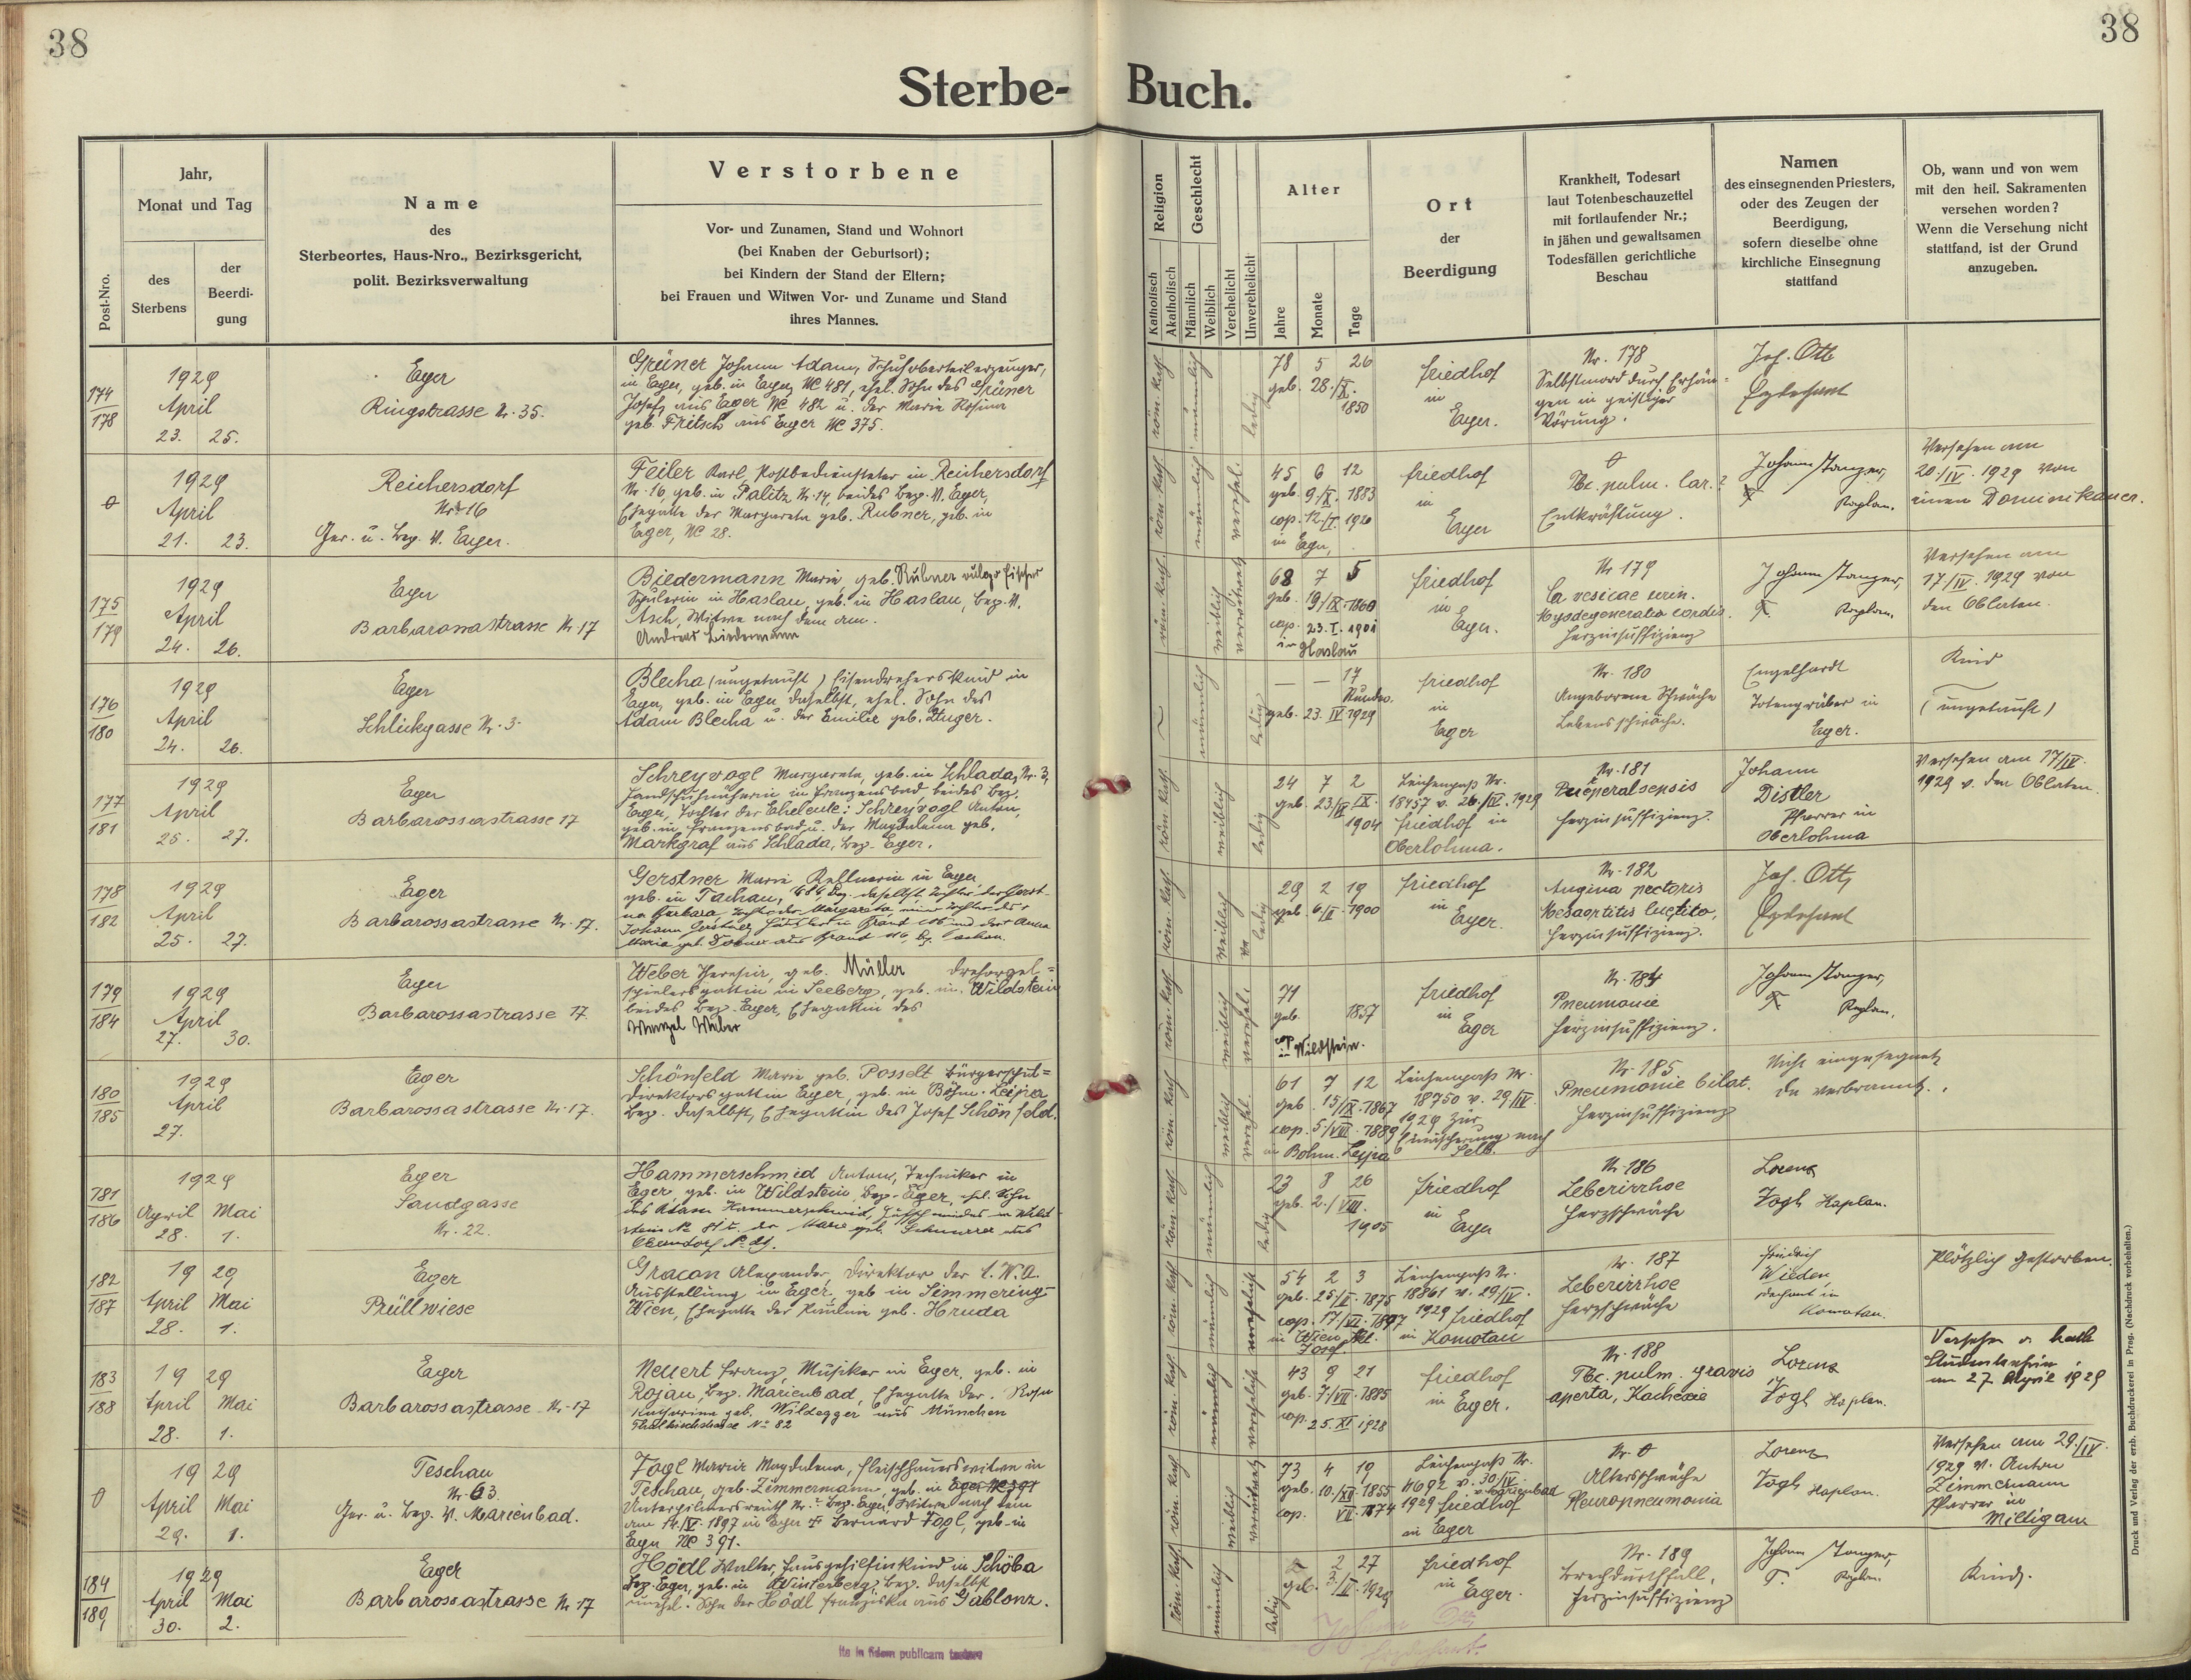 38
38
Sterbe- Buch.
Post-Nro.
Jahr,
Monat und Tag
des
Sterbens
der
Beerdi-
gung
Name
des
Sterbeortes, Haus-Nro., Bezirksgericht,
polit. Bezirksverwaltung
Verstorbene
Vor- und Zunamen, Stand und Wohnort
(bei Knaben der Geburtsort);
bei Kindern der Stand der Eltern;
bei Frauen und Witwen Vor- und Zuname und Stand
ihres Mannes.
Religion
Katholisch
Akatholisch
Geschlecht
Männlich
Weiblich
Verehelicht
Unverehelicht
Alter
Jahre
Monate
Tage
Ort
der
Beerdigung
Krankheit, Todesart
laut Totenbeschauzettel
mit fortlaufender Nr.;
in jähen und gewaltsamen
Todesfällen gerichtliche
Beschau
Namen
des einsegnenden Priesters,
oder des Zeugen der
Beerdigung,
sofern dieselbe ohne
kirchliche Einsegnung
stattfand
Ob, wann und von wem
mit den heil. Sakramenten
versehen worden?
Wenn die Versehung nicht
stattfand, ist der Grund
anzugeben.
174
178
1929
April
23. 25.
Eger
Ringstrasse Nr. 35.
Grüner Johann Adam, Schuhoberteilerzeuger,
in Eger, geb. in Eger, NC 481, ehel. Sohn des Grüner
Josef, aus Eger NC 482 u. der Maria Rosina
geb. Fritsch aus Eger NC 375.
röm. kath. männlich ledig
78 5 26
geb. 28./X.
1850
Friedhof
in
Eger.
Nr. 178
Selbstmord durch Erhän-
gen in geistiger
Störung.
Joh. Ott
Erzdechant
0
1929
April
21. 23.
Reichersdorf
Nr. 16
Ger. u. Bez. V. Eger.
Feiler Karl, Postbediensteter in Reichersdorf
Nr. 16, geb. in Palitz Nr. 14, beides Bez. V. Eger,
Ehegatte der Margareta geb. Rubner, geb. in
Eger, NC 28.
röm. kath. männlich verehel.
45 6 12
geb. 9./X. 1883
cop. 12./I. 1920
in Eger,
Friedhof
in
Eger
0
Tbc. pulm. lar.?
Entkräftung.
Johann Stanger,
Kaplan.
Versehen am
20./IV. 1929 von
einem Dominikaner.
175
179
1929
April
24. 26.
Eger
Barbarossastrasse Nr. 17
Biedermann Marie, geb. Rubner vulgo Fischer
Spulerin in Haslau, geb. in Haslau, Bez. V.
Asch, Witwe nach dem am.
Andreas Biedermann
röm. kath. weiblich verwitwet
68 7 5
geb. 19/IX. 1860
cop. 23. I. 1901
in Haslau
Friedhof
in
Eger.
Nr 179
Ca vesicae urin.
Myodegeneratio cordis.
Herzinsuffizienz
Johann Stanger,
Kaplan.
Versehen am
17/IV. 1929 von
den Oblaten.
176
180
1929
April
24. 26.
Eger
Schlickgasse Nr. 3
Blecha (ungetauft) Eisendreherskind in
Eger, geb. in Eger, daselbst, ehel. Sohn des
Adam Blecha u. der Emilie geb. Luger.
männlich ledig
— — 17
Stunden.
geb. 23. IV 1929
Friedhof
in
Eger
Nr. 180
Angeborene Schwäche
Lebensschwäche.
Engelhardt
Totengräber in
Eger.
Kind
(ungetauft)
177
181
1929
April
25. 27.
Eger
Barbarossastrasse 17
Schreyvogl Margareta, geb. in Schlada, Nr. 3,
Handschuhnäherin in Franzensbad beides Bez.
Eger, Tochter der Eheleute: Schreyvogl Anton,
geb. in Franzensbad u. der Magdalena geb.
Markgraf aus Schlada, Bez. Eger.
röm. kath. weiblich ledig
24 7 2
geb. 23/IX.
1904
Leichenpaß Nr.
18457 v. 26./IV. 1929
Friedhof in
Oberlohma.
Nr. 181
Puerperalsepsis
Herzinsuffizienz.
Johann
Distler
Pfarrer in
Oberlohma
Versehen am 17/IV.
1929 v. den Oblaten.
178
182
1929
April
25. 27.
Eger
Barbarossastrasse Nr. 17.
Gerstner Marie Kellnerin in Eger
geb. in Tachau, Bez. daselbst, Tochter der Gerst-
ner Barbara, Tochter der Margareta, einer Tochter des
Johann Gerstner, Häusler in Brand und der Anna
Maria geb. aus Brand 116, Bz. Tachau.
röm. kath. weiblich ledig
29 2 19
geb. 6/II. 1900
Friedhof
in
Eger.
Nr. 182
Angina pectoris
Mesaortitis luetica,
Herzinsuffizienz.
Joh. Ott,
Erzdechant
179
184
1929
April
27. 30.
Eger
Barbarossastrasse 17
Weber Theresia, geb. Müller Drehorgel=
spielersgattin in Seeberg, geb. in Wildstein
beides Bez. Eger, Ehegattin des
Wenzel Weber
röm. kath. weiblich verehel.
71
geb. 1857
cop.
in Wildstein.
Friedhof
in
Eger
Nr. 184
Pneumonie
Herzinsuffizienz.
Johann Stanger,
Kaplan.
180
185
1929
April
27.
Eger
Barbarossastrasse Nr. 17.
Schönfeld Marie geb. Posselt Bürgerschul=
direktorsgattin Eger, geb. in Böhm. Leipa
Bez. daselbst, Ehegattin des Josef Schönfeld.
röm. kath. weiblich verehel.
61 7 12
geb. 15/IX. 1867
cop. 5/VIII. 1889
in Böhm. Leipa
Leichenpaß Nr.
18750 v. 29/IV.
1929 zur
Einäscherung nach
Selb.
Nr. 185
Pneumonie bilat.
Herzinsuffizienz
Nicht eingesegnet
da verbrannt.
181
186
1929
April Mai
28. 1.
Eger
Sandgasse
Nr. 22.
Hammerschmid Anton, Techniker in
Eger, geb. in Wildstein, Bez. Eger, ehel. Sohn
des Adam Hammerschmid, Hufschmiedes in Wild-
stein u. der Marie geb. aus
Oberndorf
röm. kath. männlich ledig
23 8 26
geb. 2./VIII.
1905
Friedhof
in
Eger
Nr. 186
Lebercirrhoe
Herzschwäche
Lorenz
Vogl Kaplan.
182
187
19 29
April Mai
28. 1.
Eger
Prüllwiese
Gracon Alexander, Direktor der E. W. A.
Ausstellung in Eger, geb. in Simmering-
Wien, Ehegatte der Paulin geb. Hruda
röm. kath. männlich verehelicht
54 2 3
geb. 25/II. 1875
cop. 17./VI. 1897
in Wien
Josef.
Leichenpaß Nr.
18861 v. 29/IV.
1929 Friedhof
in Komotau
Nr. 187
Lebercirrhoe
Herzschwäche
Friedrich
Wieden,
Dechant in
Komotau.
Plötzlich gestorben.
183
188
19 29
April Mai
28. 1.
Eger
Barbarossastrasse Nr. 17
Neuert Franz, Musiker in Eger, geb. in
Rojau, Bez. Marienbad, Ehegatte der Rosa
Katharina geb. Wildegger aus München
No 82
röm. kath. männlich verehelicht
43 9 21
geb. 7/VII. 1885
cop. 25. XI. 1928
Friedhof
in Eger.
Nr. 188
Tbc. pulm. gravis
aperta, Kachexie
Lorenz
Vogl Kaplan.
Versehen
am 27. April 1929
0
19 29
April Mai
29. 1.
Teschau
Nr. 63
Ger. u. Bez. V. Marienbad.
Vogl Maria Magdalena, Fleischhauerswitwe in
Teschau, geb. Zimmermann, geb. in Eger NC 391
Unterpilmersreuth Nr. Bez. Eger, Witwe nach dem
am 14./IV. 1897 in Eger † Bernard Vogl, geb. in
Eger NC 391.
röm. kath. weiblich verwitwet
73 4 19
geb. 10./XII. 1855
cop. VII. 1874
Leichenpaß Nr.
4692 v. 30/IV.
1929 Friedhof
in Eger
Nr. 0
Altersschwäche
Pleuropneumonia
Lorenz
Vogl Kaplan.
Versehen am 29./IV.
1929 v. Anton
Zimmermann
Pfarrer in
Miltigau
184
189
1929
April Mai
30. 2.
Eger
Barbarossastrasse Nr 17
Hödl Walter, Hausgehilfinkind in Schöba
Bez. Eger, geb. in Winterberg, Bez. daselbst
unehel. Sohn der Hödl Franziska aus Gablonz.
röm. kath. männlich ledig
2 27
geb. 3/II. 1929
Friedhof
in
Eger.
Nr. 189
Brechdurchfall,
Herzinsuffizienz
Johann Stanger,
Kaplan.
Kind.
Ita in fidem publicam testor
Johann Ott,
Erzdechant.
Druck und Verlag der erzb. Buchdruckerei in Prag. (Nachdruck vorbehalten.)